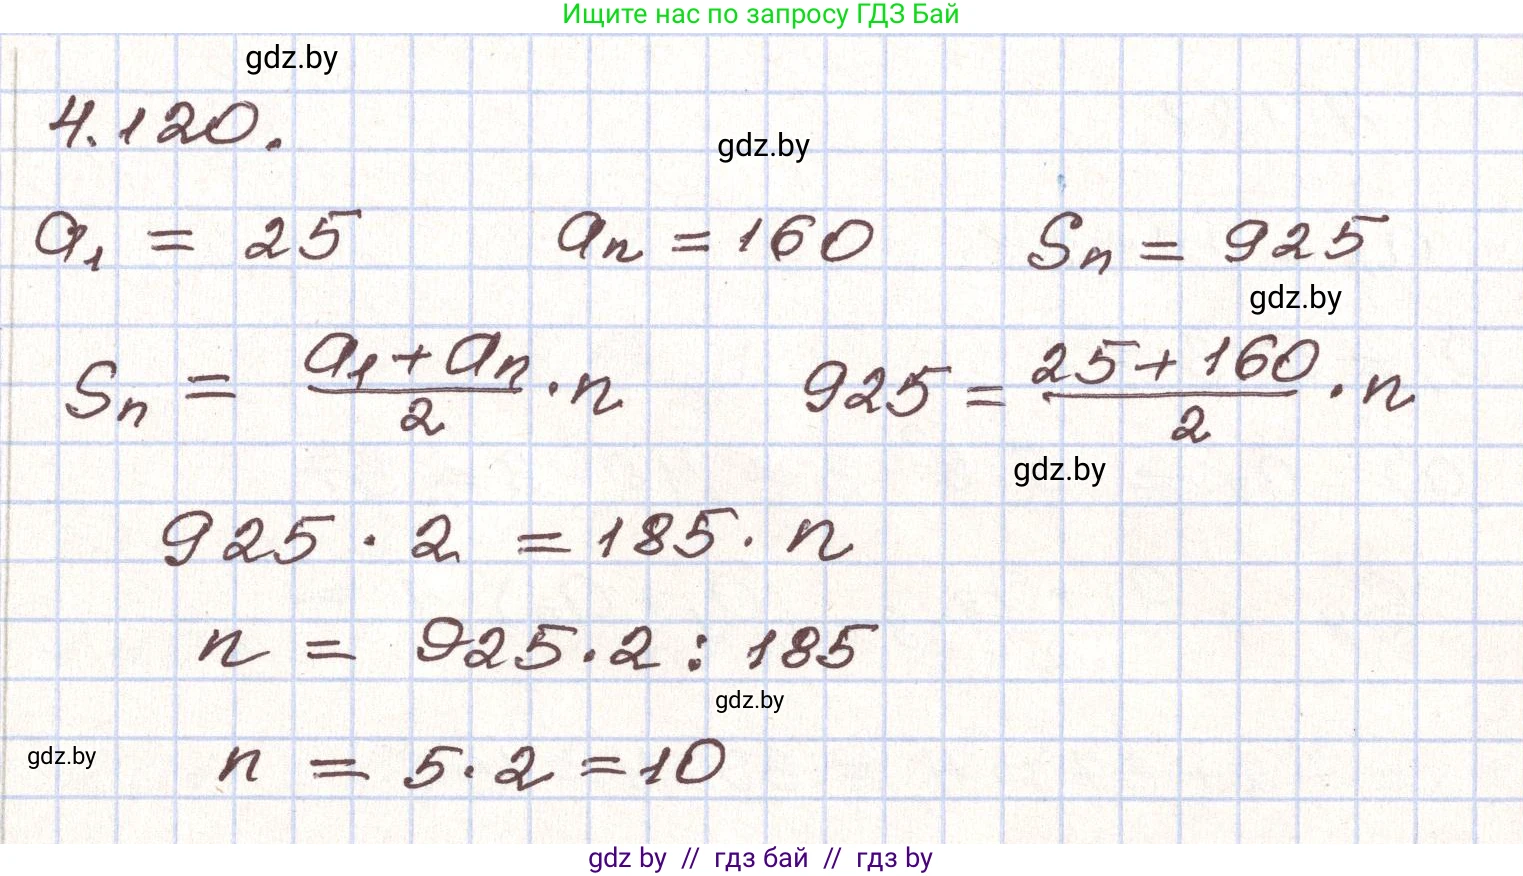 Ищите нас по запросу ГДЗ Бай
gdz.by
4.120.
gdz.by
a₁ = 25 aₙ = 160 Sₙ = 925
gdz.by
Sₙ = (a₁ + aₙ)/2 · n 925 = (25 + 160)/2 · n
gdz.by
925 · 2 = 185 · n
n = 925 · 2 : 185
gdz.by
gdz.by
n = 5 · 2 = 10
gdz by // гдз бай // гдз by